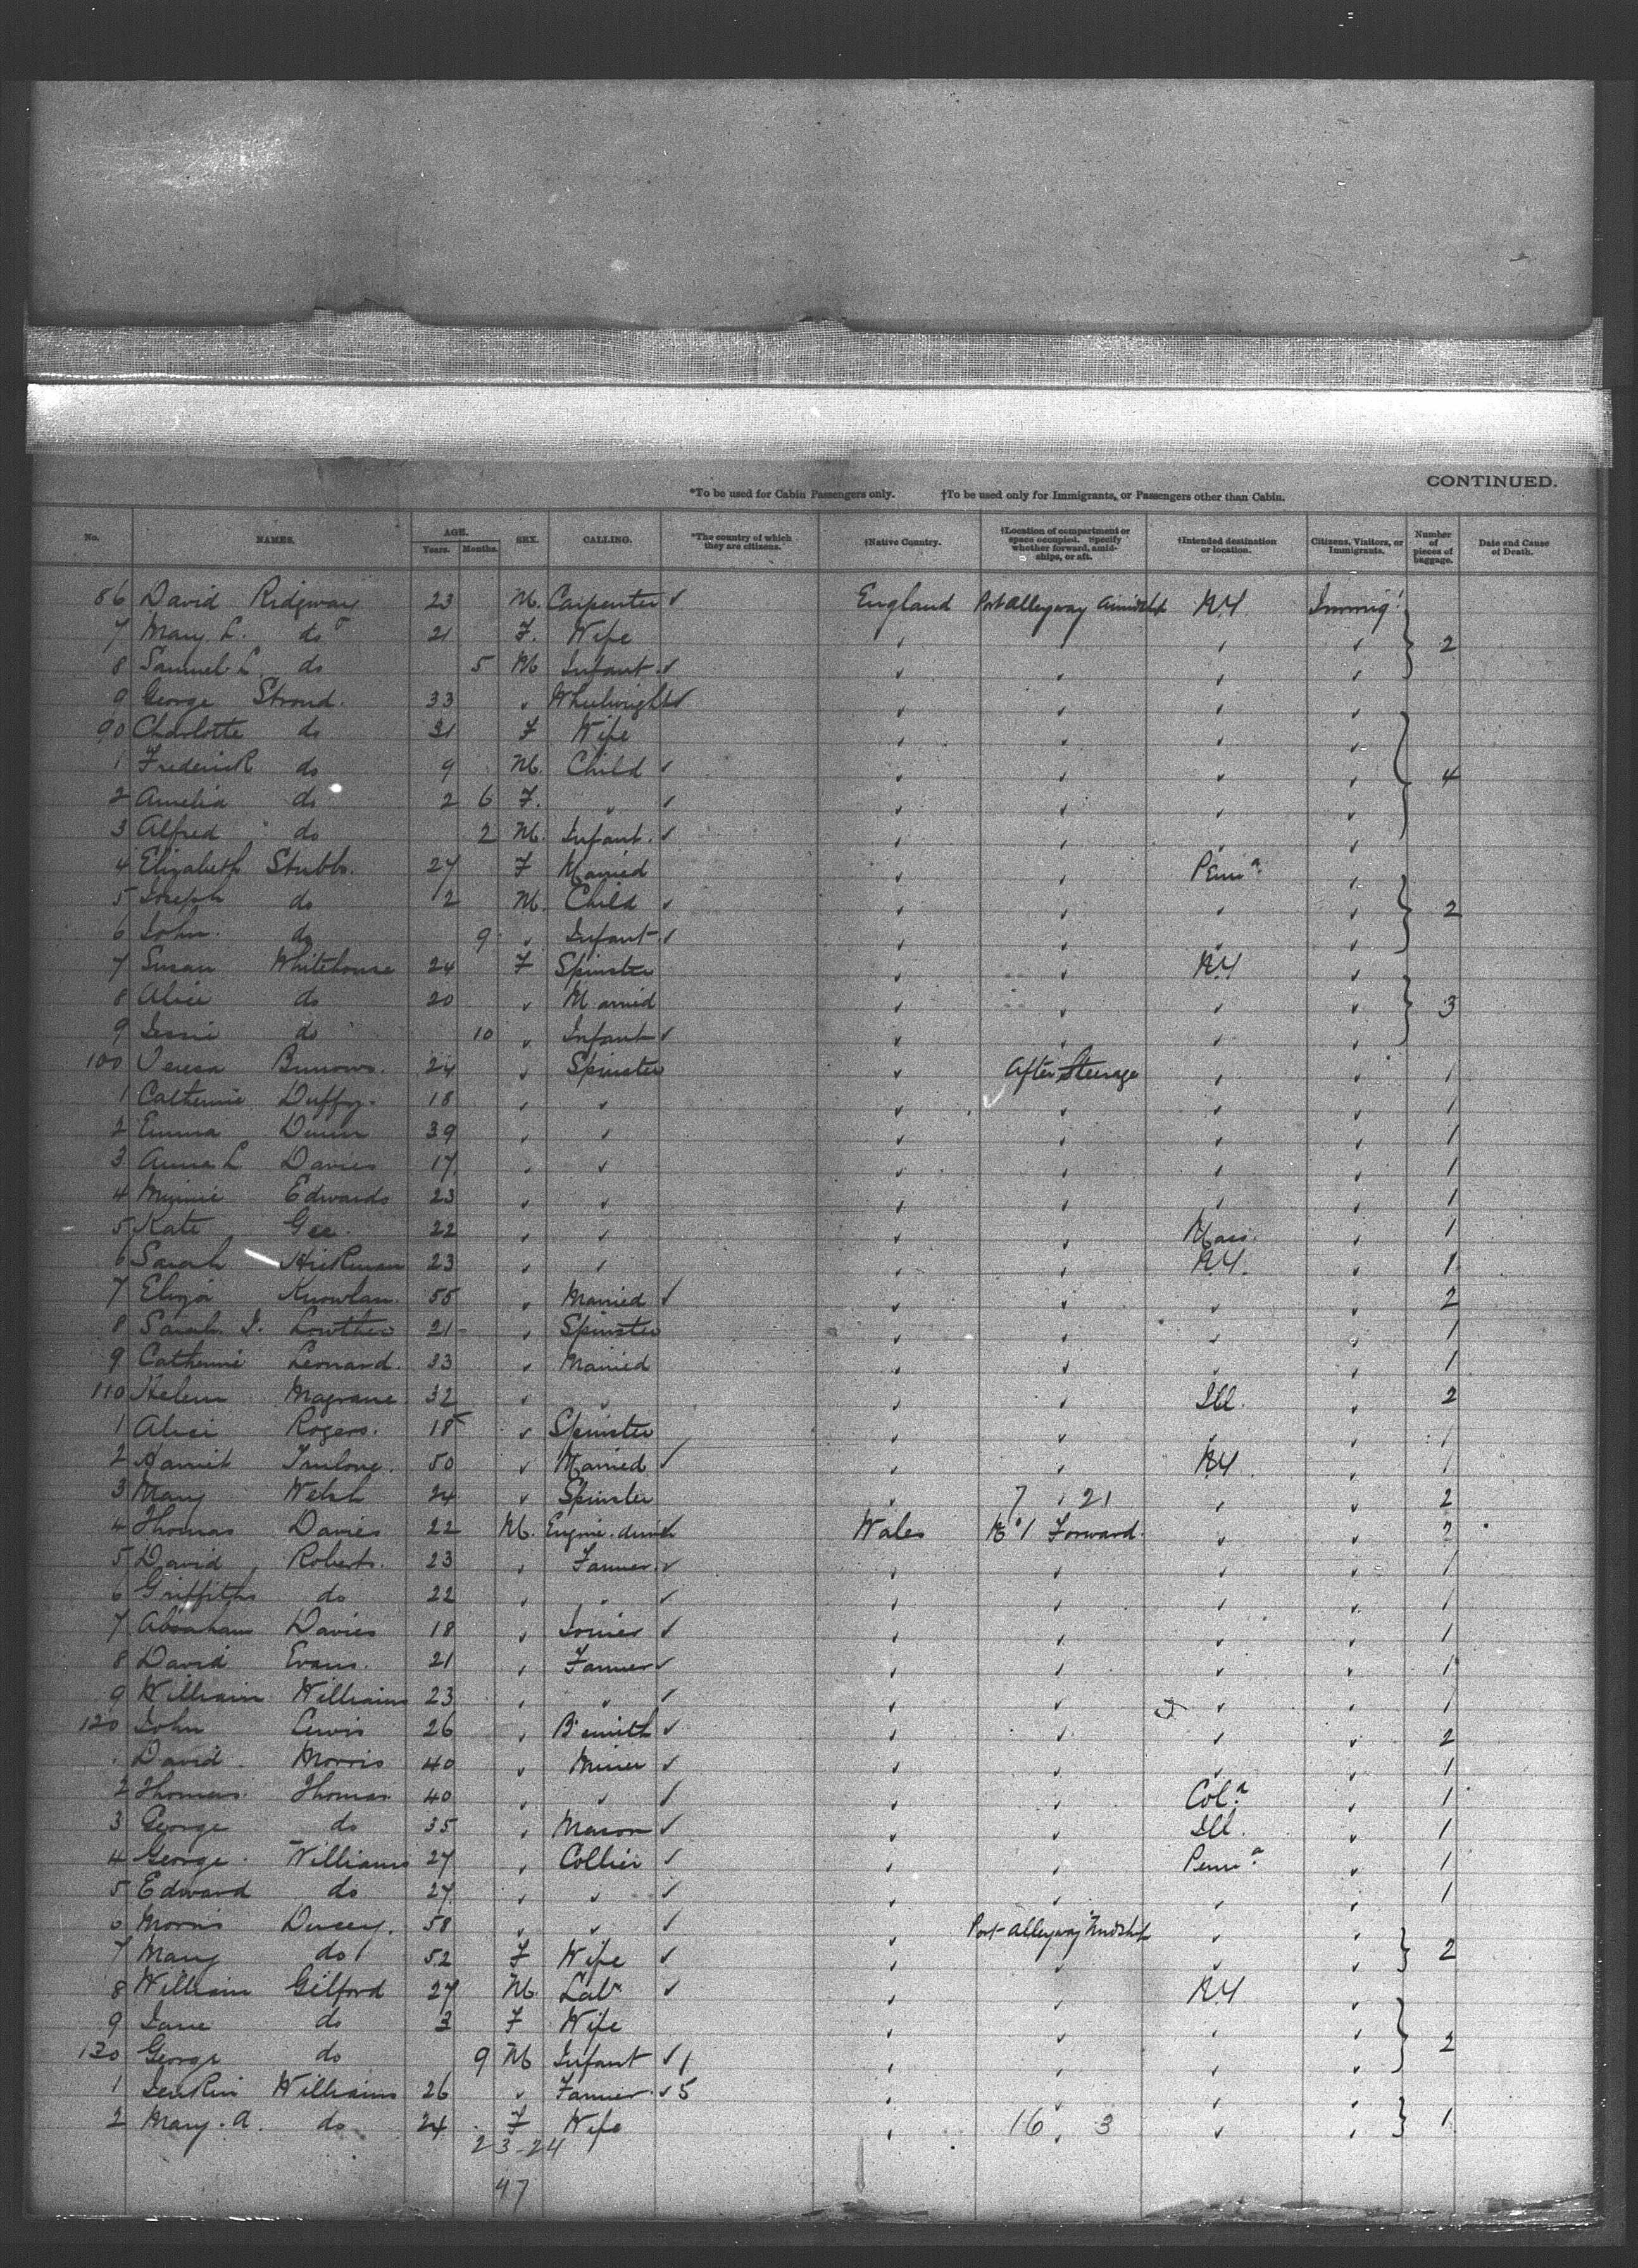 CONTINUED.
*To be used for Cabin Passengers only. †To be used only for Immigrants, or Passengers other than Cabin.
No. NAMES. AGE. Years. Months. SEX. CALLING. *The country of which they are citizens. †Native Country. †Location of compartment or space occupied. Specify whether forward, amidships, or aft. †Intended destination or location. Citizens, Visitors, or Immigrants. Number of pieces of baggage. Date and Cause of Death.
86 David Ridgway 23 M. Carpenter ✓ England Port Alleyway Amidship N.Y. Immig!
7 Mary L. do 21 F. Wife 2
8 Samuel L do 5 M Infant ✓
9 George Stroud. 33 " Wheelwright ✓
90 Charlotte do 31 F Wife
1 Frederick do 9 M. Child ✓ 4
2 Amelia do 2 6 F. " ✓
3 Alfred do 2 M. Infant. ✓
4 Elizabeth Stubbs. 27 F Married Penna.
5 Joseph do 2 M. Child ✓ 2
6 John. do 9 " Infant ✓
7 Susan Whitehouse 24 F Spinster N.Y
8 Alice do 20 " Married 3
9 Jessie do 10 " Infant ✓
100 Teresa Burrows. 24 " Spinster After Steerage 1
1 Catherine Duffy. 18 " " 1
2 Emma Dunn 39 " " 1
3 Anna L Davies 17 " " 1
4 Minnie Edwards 23 " " 1
5 Kate Gee. 22 " " Mass. 1
6 Sarah Hickman 23 " " N.Y. 1
7 Eliza Knowlan. 55 " Married ✓ 2
8 Sarah J. Lowther 21 " Spinster 1
9 Catherine Leonard. 33 " Married 1
110 Helen Magrane 32 " " Ill. 2
1 Alice Rogers. 18 " Spinster 1
2 Harriet 50 " Married ✓ N.Y 1
3 Mary Welsh 24 " Spinster 7 21 2
4 Thomas Davies 22 M. Engine driver ✓ Wales No 1 Forward. 2
5 David Roberts. 23 " Farmer ✓ 1
6 Griffiths do 22 " " ✓ 1
7 Abraham Davies 18 " Joiner ✓ 1
8 David Evans. 21 " Farmer ✓ 1
9 William Williams 23 " " ✓ 1
120 John Lewis 26 " B'smith ✓ 2
David Morris 40 " Miner ✓ 1
2 Thomas Thomas 40 " " ✓ Cola. 1
3 George do 35 " Mason ✓ Ill. 1
4 George Williams 27 " Collier ✓ Penna. 1
5 Edward do 27 " " ✓ 1
6 Morris 58 " " ✓ Port Alleyway Midship
7 Mary do 52 F Wife ✓ 2
8 William Gilford 27 M. Labr ✓ N.Y
9 Jane do 3 F Wife 2
130 George do 9 M Infant ✓ 1
1 Jenkin Williams 26 " Farmer ✓ 5
2 Mary. A. do 24 F Wife 16 3 1
23-24
47